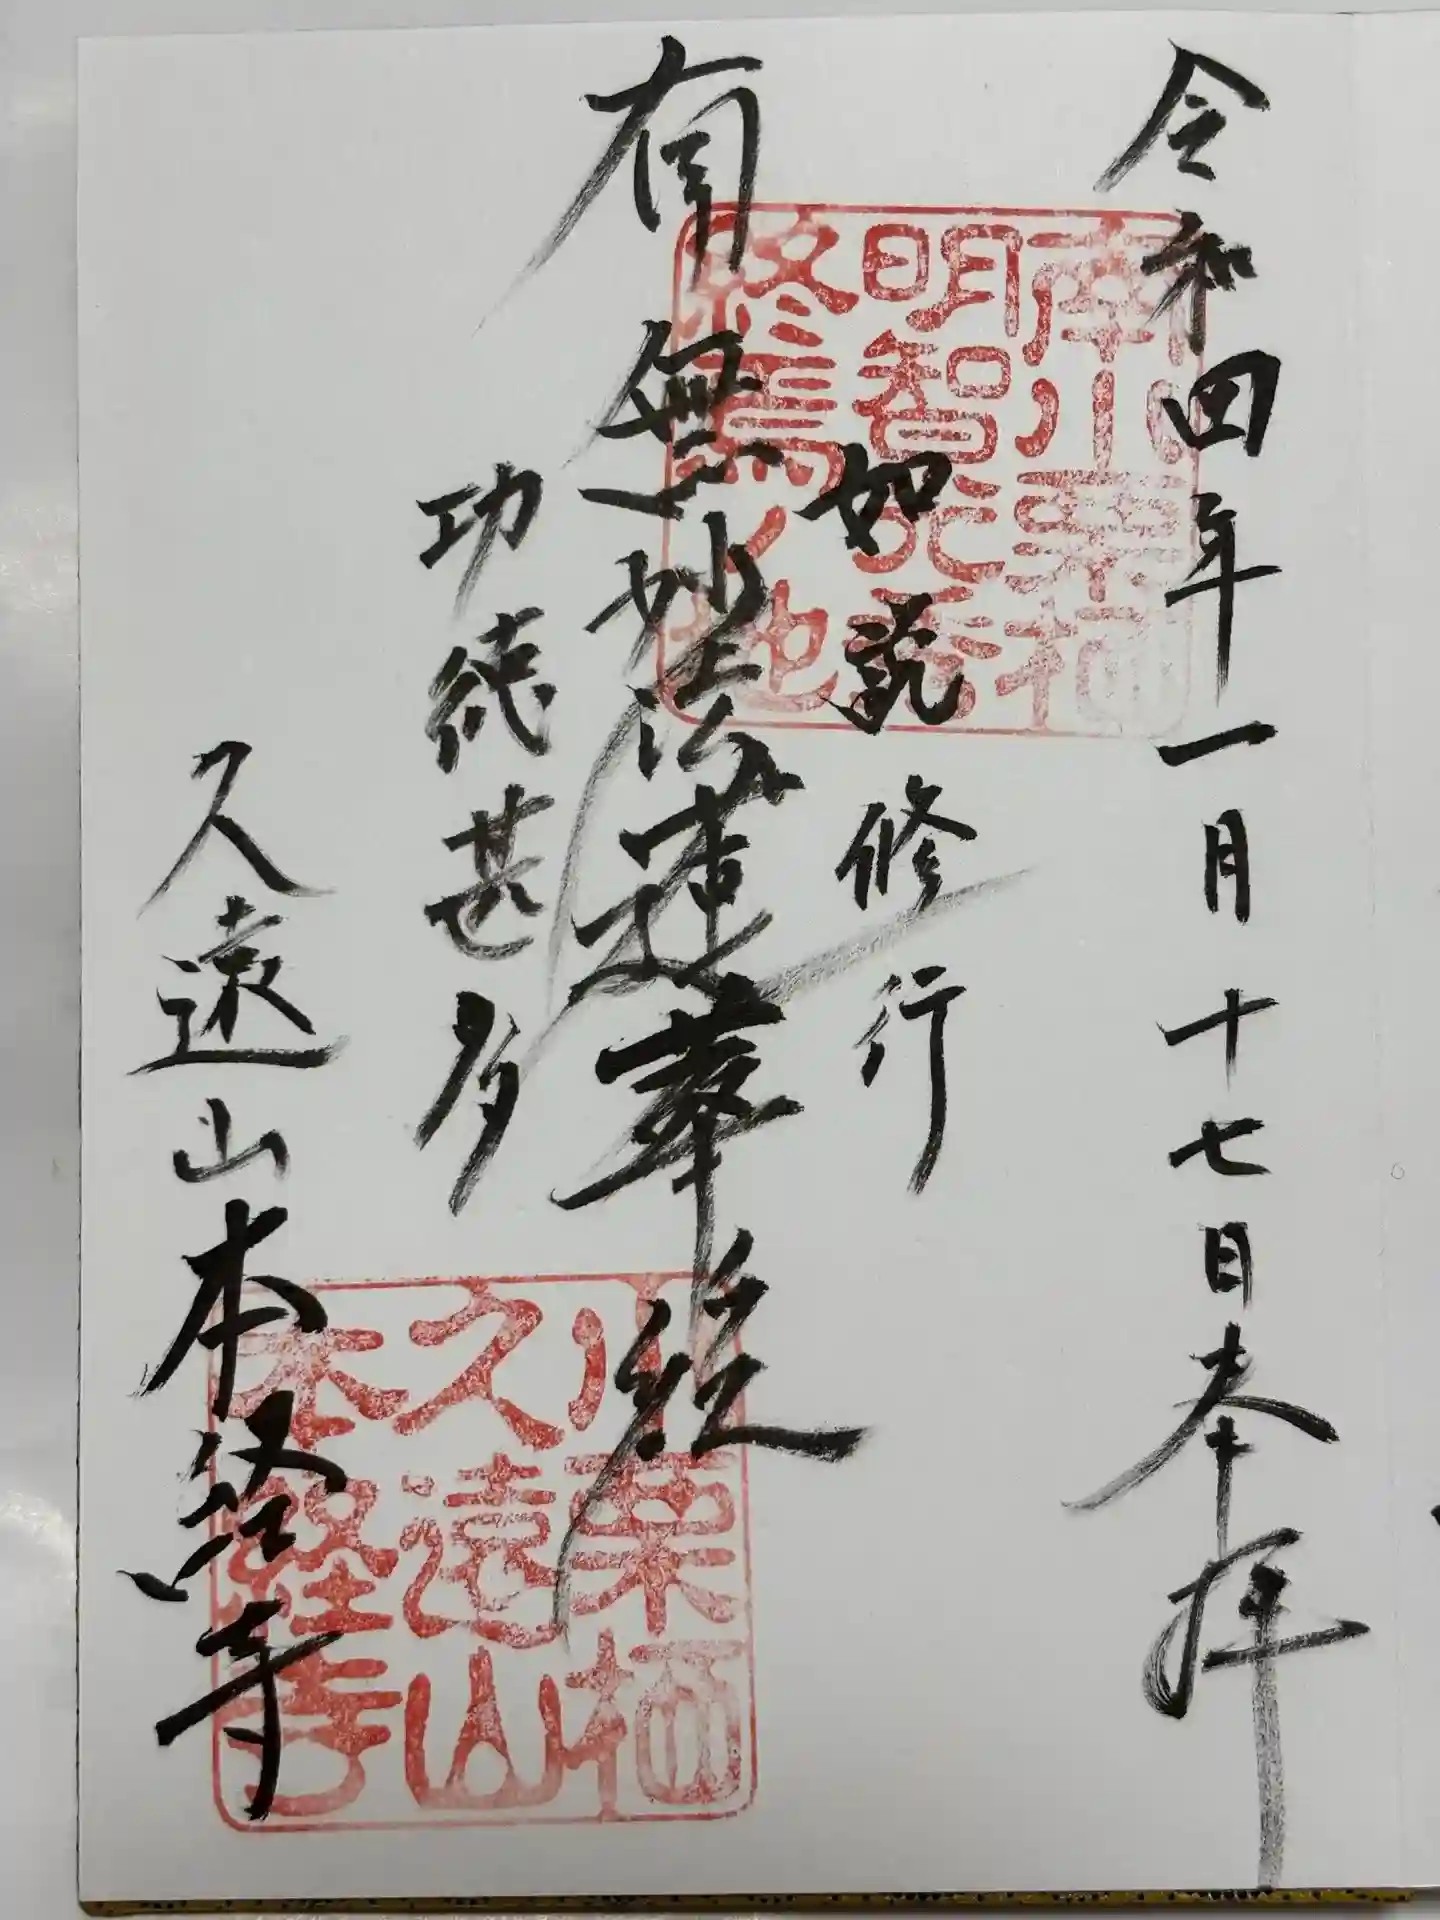 令和四年一月十七日奉拝
如説修行
南無妙法蓮華経
功徳甚多
久遠山本経寺
南小栗栖
明智光秀
終焉之地
小栗栖
久遠山
本経寺